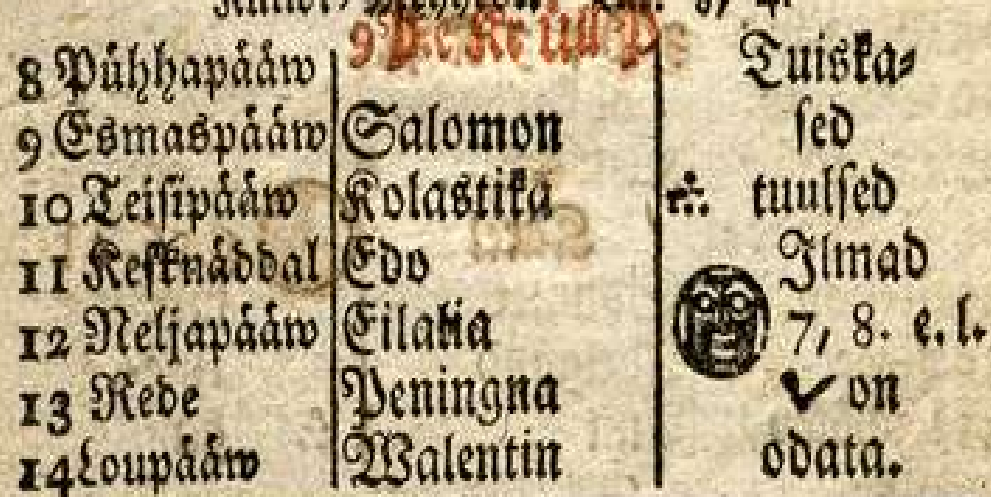 8 Pühhapääw Tuiska⸗
9 Esmaspääw Salomon sed
10 Teisipääw Kolastika tuulsed
11 Kesknäddal Edo Ilmad
12 Neljapääw Eilalia 7, 8. e. l.
13 Rede Peningna on
14 Loupääw Walentin odata.